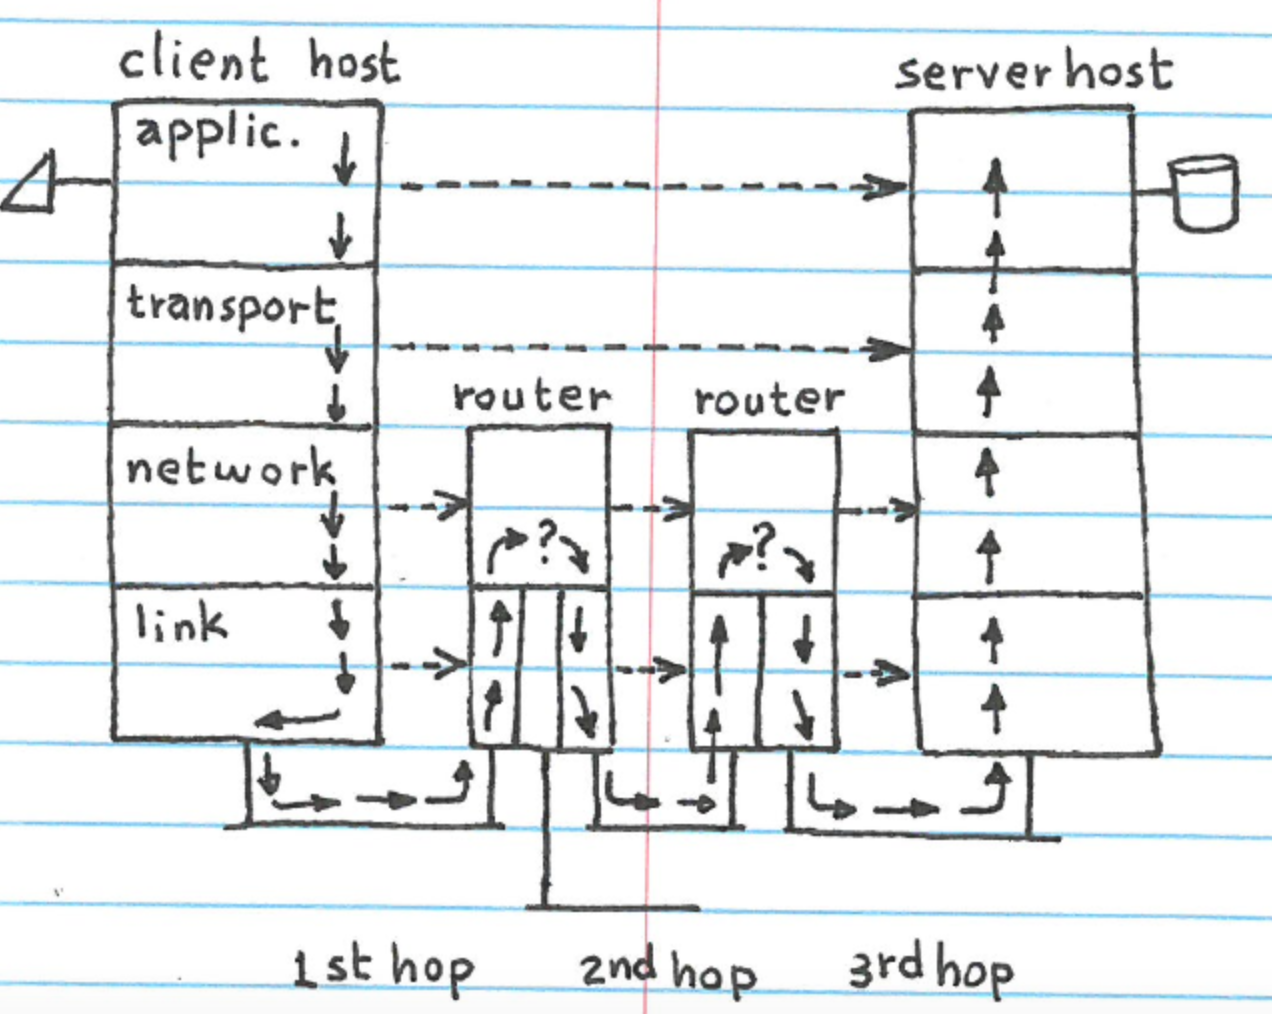 client host
server host
applic.
transport
router
router
network
?
?
link
1st hop
2nd hop
3rd hop